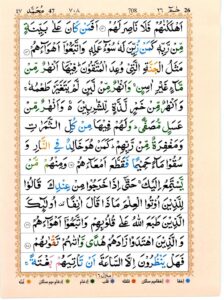 26 حٰمٓ ٢٦ ٧٠٨ مُحَمَّد 47 ٤٧
اَهْلَكْنٰهُمْ فَلَا نَاصِرَ لَهُمْ اَفَمَنْ كَانَ عَلٰى بَيِّنَةٍ
مِّنْ رَّبِّهٖ كَمَنْ زُيِّنَ لَهٗ سُوْٓءُ عَمَلِهٖ وَاتَّبَعُوْٓا اَهْوَآءَهُمْ
مَثَلُ الْجَنَّةِ الَّتِيْ وُعِدَ الْمُتَّقُوْنَ فِيْهَآ اَنْهٰرٌ مِّنْ
مَّآءٍ غَيْرِ اٰسِنٍ وَاَنْهٰرٌ مِّنْ لَّبَنٍ لَّمْ يَتَغَيَّرْ طَعْمُهٗ
وَاَنْهٰرٌ مِّنْ خَمْرٍ لَّذَّةٍ لِّلشّٰرِبِيْنَ وَاَنْهٰرٌ مِّنْ
عَسَلٍ مُّصَفًّى وَلَهُمْ فِيْهَا مِنْ كُلِّ الثَّمَرٰتِ
وَمَغْفِرَةٌ مِّنْ رَّبِّهِمْ كَمَنْ هُوَ خَالِدٌ فِي النَّارِ وَ
سُقُوْا مَآءً حَمِيْمًا فَقَطَّعَ اَمْعَآءَهُمْ وَمِنْهُمْ مَّنْ
يَّسْتَمِعُ اِلَيْكَ حَتّٰٓى اِذَا خَرَجُوْا مِنْ عِنْدِكَ قَالُوْا
لِلَّذِيْنَ اُوْتُوا الْعِلْمَ مَاذَا قَالَ اٰنِفًا اُولٰٓئِكَ
الَّذِيْنَ طَبَعَ اللّٰهُ عَلٰى قُلُوْبِهِمْ وَاتَّبَعُوْٓا اَهْوَآءَهُمْ
وَالَّذِيْنَ اهْتَدَوْا زَادَهُمْ هُدًى وَّاٰتٰىهُمْ تَقْوٰىهُمْ
فَهَلْ يَنْظُرُوْنَ اِلَّا السَّاعَةَ اَنْ تَاْتِيَهُمْ بَغْتَةً